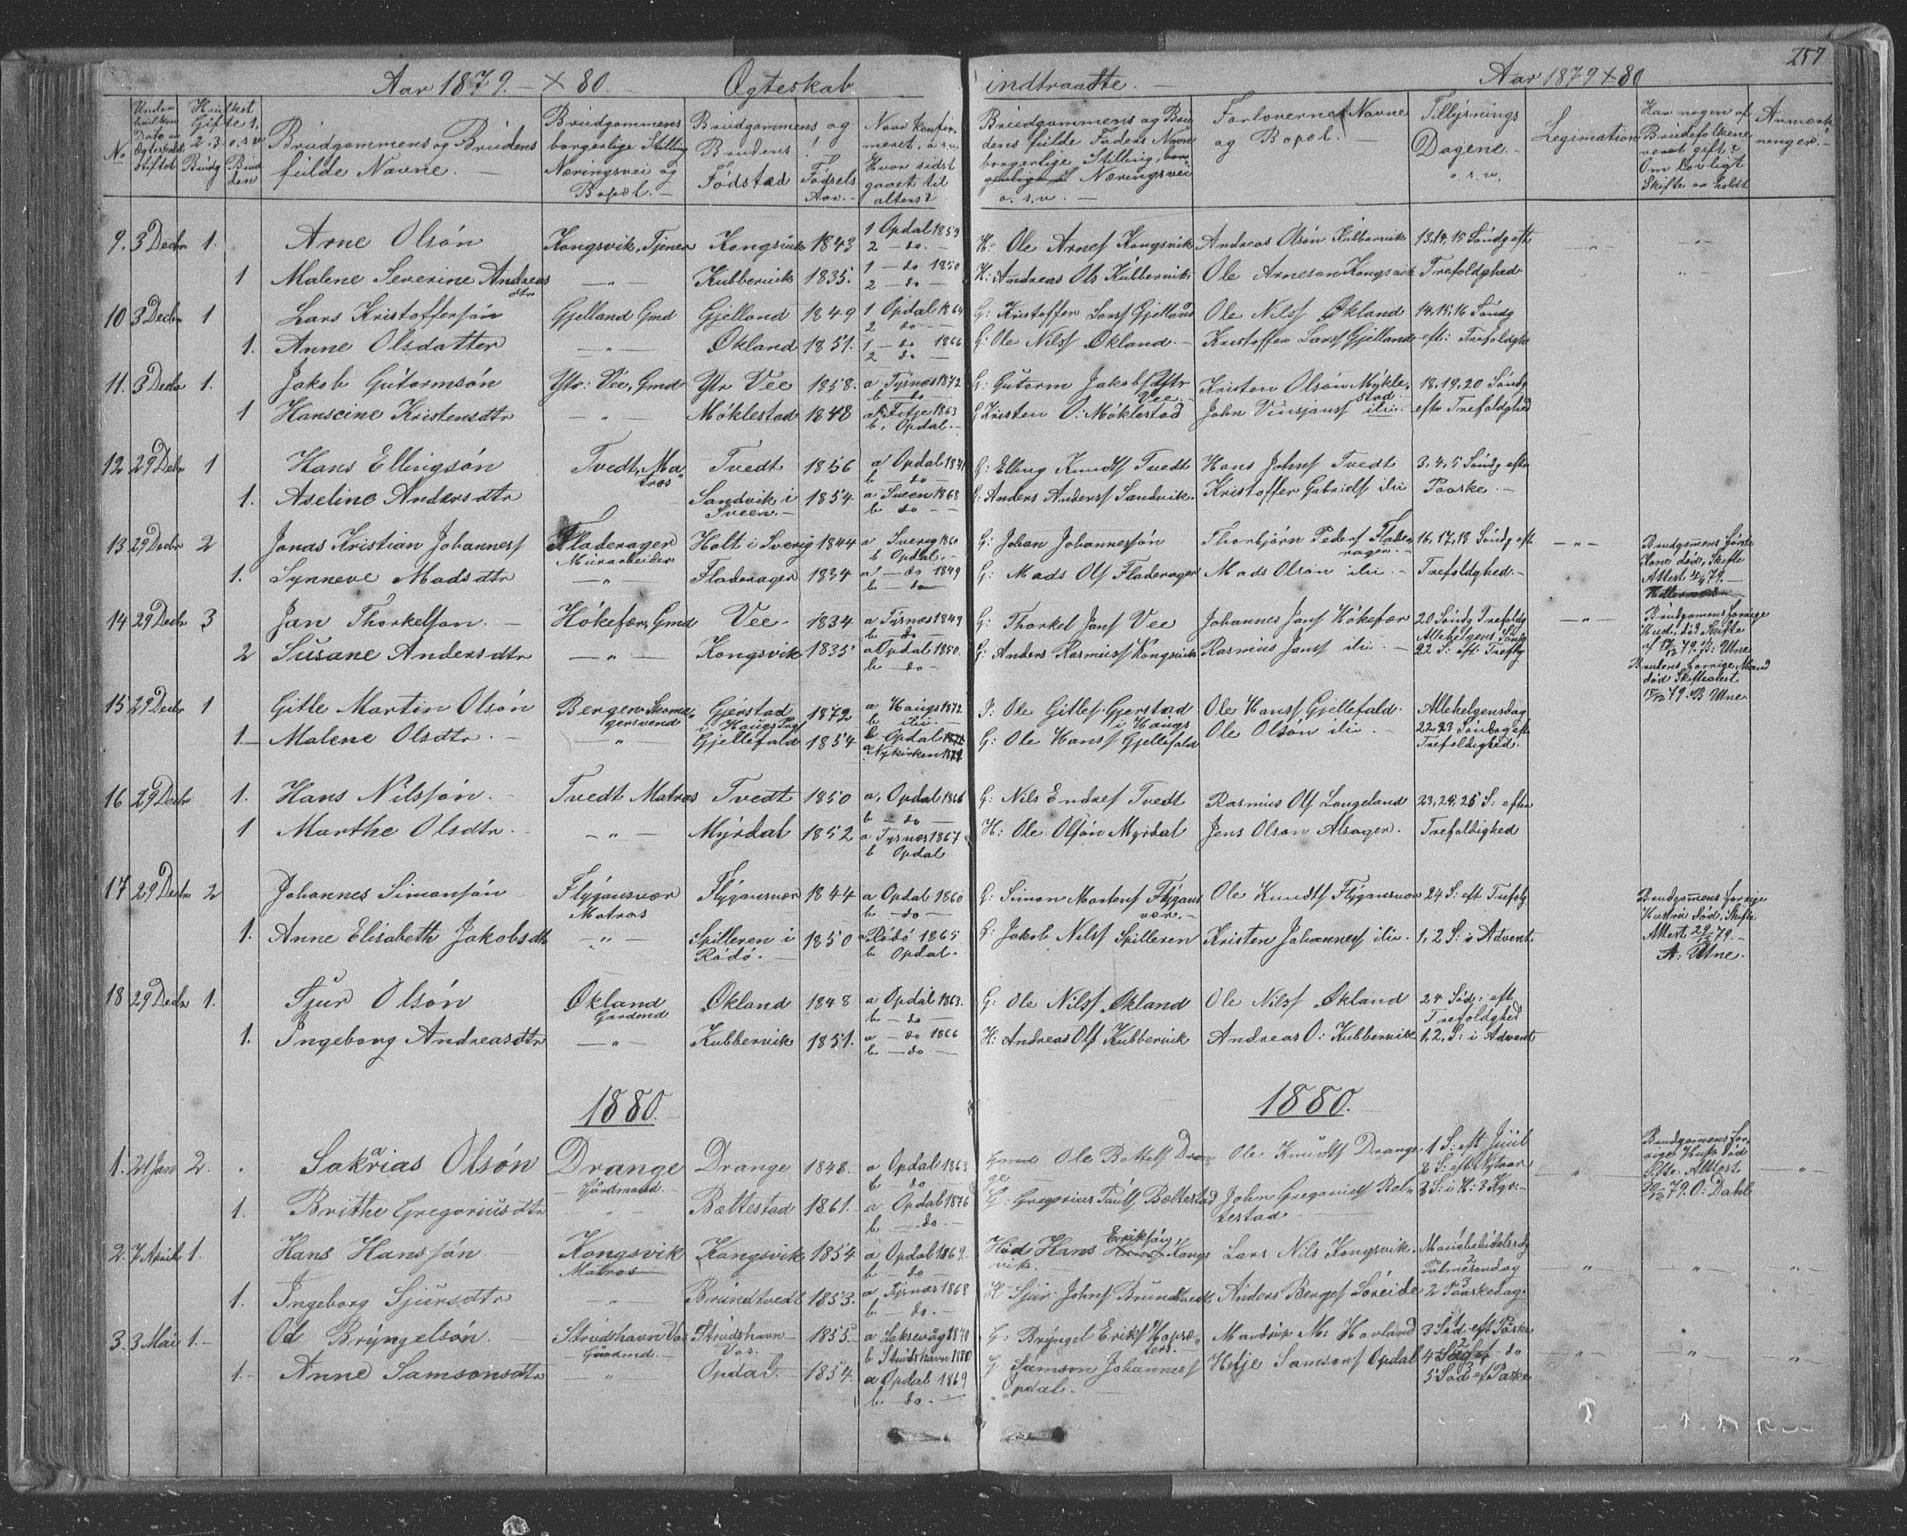 Aar 1879. - x 80. Ogteskab indtraadte. - Aar 1879 x 80 257
No. Under hvilken Dato er Ogteskabet stiftet
Hvilket Gifte 1, 2. 3. o.s.v. Brudg Bruden
Brudgommens og Brudens fulde Navne. -
Brudgommens borgerlige Stilling Næringsvei og Bopæl. -
Brudgommens og Brudens Fødstad Fødsels Aar. -
Naar konfirmeret, o.s.v. Hvor sidst gaaet til alters?
Brudgommens og Brudens fulde Faders Navn borgerlige Stilling, Næringsvei o.s.v. -
Forlovernes Navne og Bopæl. -
Tillysnings Dagene. - o.s.v.
Legimation
Har nogen af Brudefolkene været gift? Om Lovligt Skifte er holdt
Anmærkninger. -
9. 3 Decbr 1. Arne Olsón Kongsvik, Tjener Kongsvik 1843 1 Opdal 1859 2 - do. - H: Ole Arnes Kongsvik Andreas Olsón Kubbervik 13,14,15 Søndg eft
1 Malene Severine Andreasdtr - " - Kubbervik 1835. 1 - do 1850 2 - do - H: Andreas Ols Kubbervik Ole Arneson Kongsvik Trefoldghed
10 3 Decbr 1 Lars Kristoffersón Gjelland Gmd Gjelland 1849 1 Opdal 1864 2 do - G: Kristoffer Larss Gjelland Ole Nilss Økland 14,15,16 Søndg
1. Anne Olsdatter - " - Økland 1851. 1 - do 1866 2 - do - G: Ole Nilss Økland. - Kristoffer Larss Gjelland eft: Trefoldghd
11. 3 Decbr 1. Jakob Gutormsón Ytr: Vee, Gmd Ytr Vee 1858. a Tysnes 1872 b - do G: Gutorm Jakobs Ytr Vee. - Kristen Olsón Mykle- 18,19,20 Søndg
1 Hanscine Kristensdtr - " - Møklestad 1848 a Fitje 1863 b, Opdal. - G Kristen O: Møklestad John Vinsjanss ibi. - eftr Trefoldghed
12 29 Debr 1 Hans Ellingsón Tvedt, Matros Tvedt 1856 a Opdal 1871 b - do - G: Elling Knudss Tvedt Hans Johns Tvedt 3,4,5 Søndg eftr
1. Aseline Andersdtr Sandvik i Sveen. - 1854 a Sveen 1868 b - do G: Anders Anderss Sandvik. Kristoffer Gabriels ibi Paaske. -
13 29 Decbr 2 Jonas Kristian Johanness Fladerager Murarbeider Holt i Sverig 1844 a Sverig 1860 b Opdal. - G: Johan Johannessón Thorbjørn Peders Fladerager. - 16,17,18 Søndg eft - " - Brudgomens første Kone død, Skifte Attest 79. -
1. Synneve Madsdtr - " - Fladerager 1834 a - do 1849 b - do G: Mads Ols Fladerager Mads Olsón ibi. - Trefoldghed. -
14 29 Decbr 3 Jan Thorkelson. - Høkefær, Gmd Vee. 1834 a Tysnes 1849 b do G: Thorkel Jans Vee Johannes Jans Høkefær 20 Søndg Trefoldg Allehelgens Søndg - " - Brudgomens forrige Hust: død Skifte 79. B: Utne
2 Susane Andersdtr - " - Kongsvik 1835 a Opdal 1850. b - do - G: Anders Rasmuss Kongsvik Rasmus Janss ibi. - 22 S: eft: Trefldg Brudens forrige Mand død Skifteatest 79. B Utne
15 29 Decbr 1 Gitle Martin Olsón Bergen Skomagersvend Gjerstad i Haugs Pgj 1872 a Haugs 1872 b ibi. - P: Ole Gitless Gjerstad i Haugs Ole Hanss Gjellefald. Allehelgensdag
1 - Malene Olsdtr. - - " - Gjellefald 1854 b Opdal a Nykirken G: Ole Hanss Gjellefald Ole Olsón ibi. - 22,23 Søndag eft Trefoldighed.
16 29 Decbr 1. Hans Nilssón. Tvedt Matros Tvedt 1850 a, Opdal 1866 b - do - G: Nils Endres Tvedt Rasmus Ols Langeland 23,24,25 S: eftr
1 Marthe Olsdtr. - - " - Myrdal 1852 a Tysnes 1867 b Opdal H: Ole Olsón Myrdal Jens Olson Alsager. Trefoldighed
17 29 Decbr 2 Johannes Simonsón Flygansvær Matros Flygansvær 1844 a Opdal 1860 b - do - G: Simon Mortens Flygansvær. - Ole Knuds Flygansvær 24 S: eft Trefoldg Brudgomens forrige Hustru død, Skifte Attest 29/12 79. - A: Utne.
1. Anne Elisabeth Jakobsdtr - " - Spilleren i Rødø. 1850 a Rødø 1865 b Opdal. G: Jakob Nilss Spilleren Kristen Johanness ibi. 1, 2 S: i Advent
18 29 Decbr 1. Sjur Olsón Økland Gardmd Økland 1848 a Opdal 1863. b - do - G: Ole Nilss Økland Ole Nilss Økland 24 Sød. eft Trefoldghed
1. Ingeborg Andreasdtr - " - Kubbervik 1851. a - do 1866 b - do - H: Andreas Ols Kubbervik Andreas O: Kubbervik 1, 2, S: i Advent
1880. 1880.
1. 21 Jan 2. Sakrias Olsón Drange Gårdmand. - Drange 1848. a Opdal 1863 b - do Gaard Ole Bottels Drange Ole Knudss Drange 1 S: eft Juul 2 S: eft Nytaar " Brudgomens forrige Hust død Skfte Attest 79. O: Dahl - " -
1. Brithe Gregoriusdtr " Bæltestad 1861. a Opdal 1876 b - do - G. Gregorius Pauls Bæltestad John Gregorius Bæltestad 3 S: i H: 3 Kgr: -
2. 7 April 1. Hans Hanssón Kongsvik Matros Kongsvik 1854 a Opdal 1869. b - do - Hūd Hans Eriksøn Kongsvik. Lars Nils Kongsvik. Mariæbebudelsesdg 2 Palmesøndag - " - " "
1. Ingeborg Sjursdtr " Brundtvedt 1853. a Tysnes 1868 b - do. - H Sjur Johns Brundtvedt Anders Berges Søreide 3 2 Paaskedag.
3. 3 Mai 1. - Od Bryngelsón. Strudshavn Vos Gårdmd. Strudshavn Vos. 1855 a Lakesvåg 1870 b Strudshavn 1880 G: Bryngel Eriks Mordrup M: Hovland 3 Sød eft Påske 4 Søg ef do - " - " "
1. - Anne Samsonsdtr - " - Opdal. - 1854. a Opdal 1869 b - do. - G. Samson Johanness Opdal. - Helje Samsons Opdal 5 Sød ef Påske